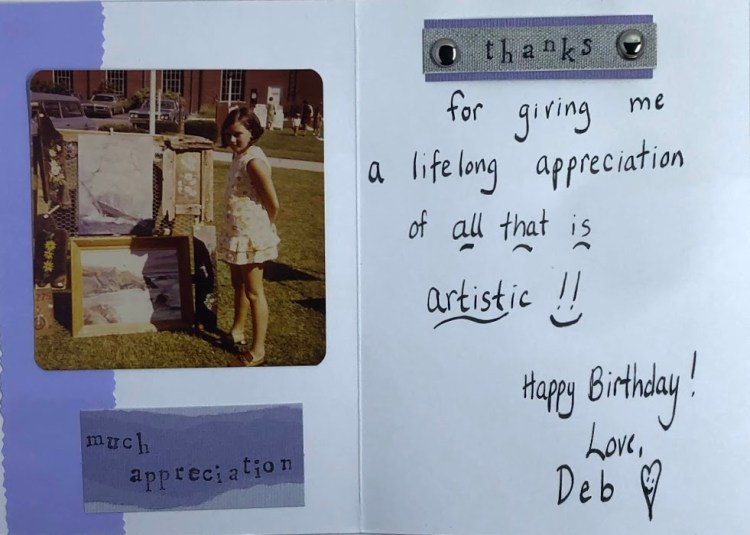 much
appreciation
thanks
for giving me
a lifelong appreciation
of all that is
artistic !!
Happy Birthday!
Love,
Deb